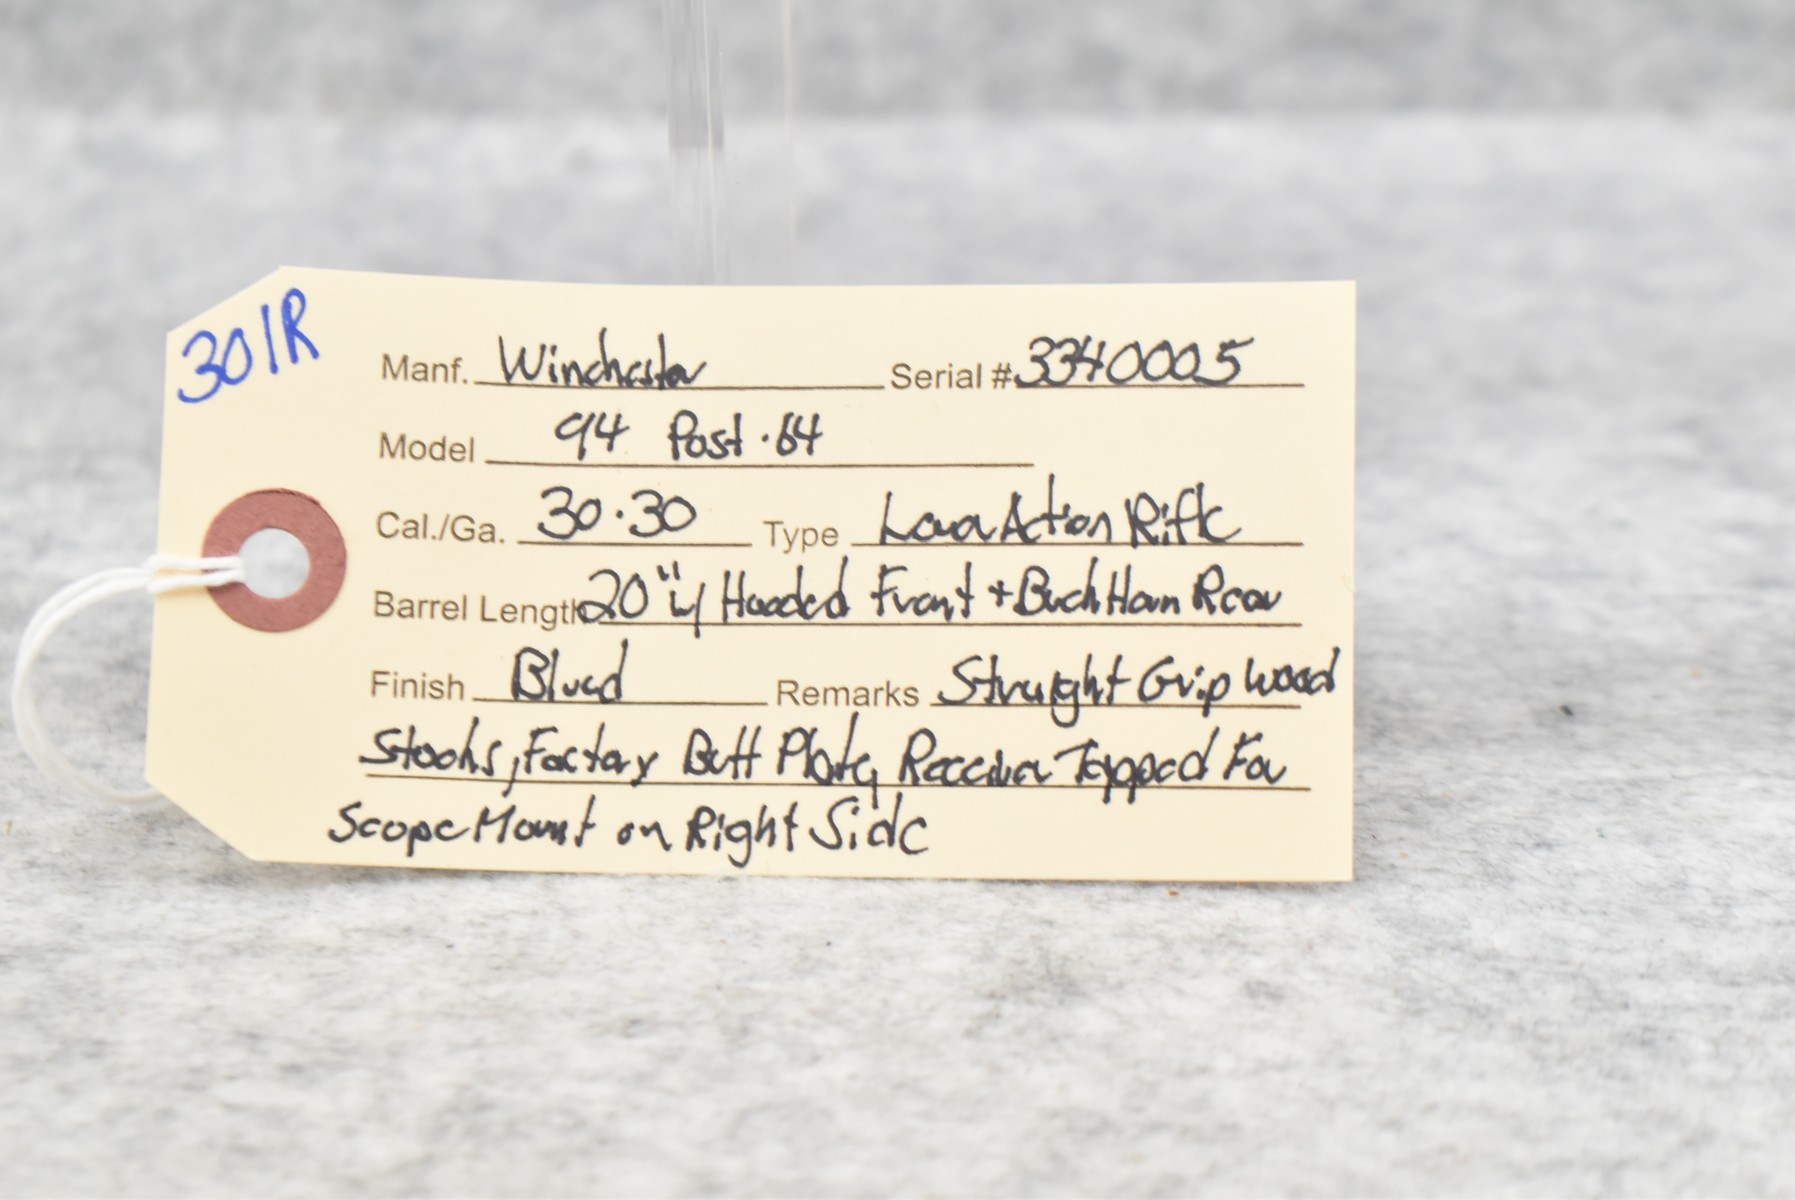 301R
Manf. Winchester Serial # 3340005
Model 94 Post .64
Cal./Ga. 30.30 Type Lever Action Rifle
Barrel Length 20" w/ Hooded Front + Buck Horn Rear
Finish Blued Remarks Straight Grip Wood
Stocks, Factory Butt Plate, Receiver Tapped For
Scope Mount on Right Side